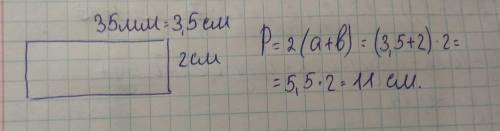 35мм = 3,5 см
2 см
P = 2 (a+b) = (3,5+2)·2 =
= 5,5·2 = 11 см.